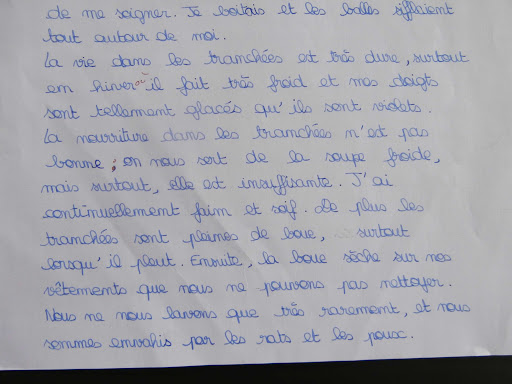 de me soigner. Je boitais et les balles sifflaient
tout autour de moi.
La vie dans les tranchées est très dure, surtout
en hiver où il fait très froid et mes doigts
sont tellement glacés qu'ils sont violets.
La nourriture dans les tranchées n'est pas
bonne; on nous sert de la soupe froide,
mais surtout, elle est insuffisante. J'ai
continuellement faim et soif. De plus les
tranchées sont pleines de boue, surtout
lorsqu'il pleut. Ensuite, la boue sèche sur nos
vêtements que nous ne pouvons pas nettoyer.
Nous ne nous lavons que très rarement, et nous
sommes envahis par les rats et les poux.